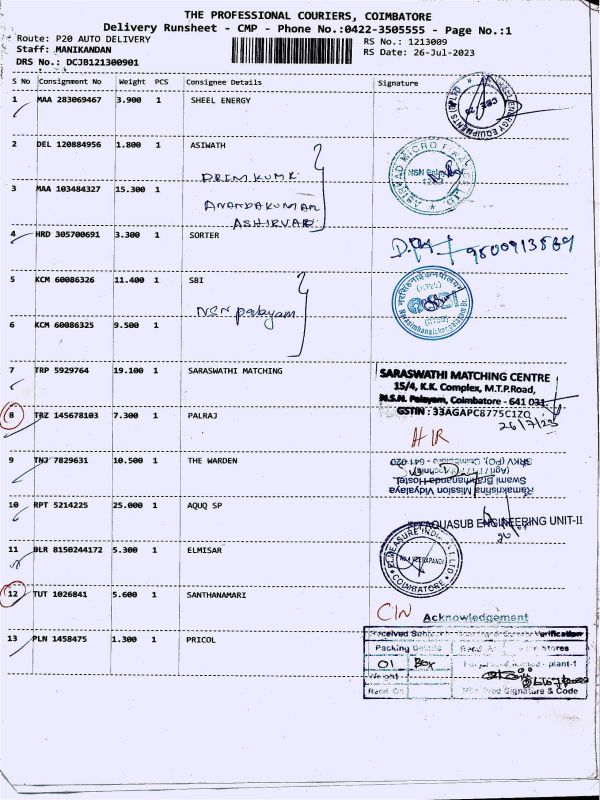 THE PROFESSIONAL COURIERS, COIMBATORE
Delivery Runsheet - CMP - Phone No.:0422-3505555 - Page No.:1
Route: P20 AUTO DELIVERY
Staff: MANIKANDAN
DRS No.: DCJB121300901
RS No.: 1213009
RS Date: 26-Jul-2023
S No Consignment No Weight PCS Consignee Details Signature
1 MAA 283069467 3.900 1 SHEEL ENERGY
2 DEL 120884956 1.800 1 ASIWATH
PREM KUMR
3 MAA 103484327 15.300 1
ANANDAKUMAR
ASHIRVAD
4 HRD 305700691 3.300 1 SORTER
5 KCM 60086326 11.400 1 SBI
NSN palayam
6 KCM 60086325 9.500 1
7 TRP 5929764 19.100 1 SARASWATHI MATCHING
SARASWATHI MATCHING CENTRE
15/4, K.K. Complex, M.T.P.Road,
N.S.N. Palayam, Coimbatore - 641 031
GSTIN : 33AGAPC8775C1ZQ
26/7/23
8 TRZ 145678103 7.300 1 PALRAJ
9 TNJ 7829631 10.500 1 THE WARDEN
Ramakrishna Mission Vidyalaya
Swami Bramhananda Hostel
SRKV (PO), Coimbatore - 641 020
10 RPT 5214225 25.000 1 AQUQ SP
AQUASUB ENGINEERING UNIT-II
11 BLR 8150244172 5.300 1 ELMISAR
COIMBATORE
12 TUT 1026841 5.600 1 SANTHANAMARI
Acknowledgement
13 PLN 1458475 1.300 1 PRICOL
Verification
Packing Details
Stores
01 Box
plant-1
Signature & Code